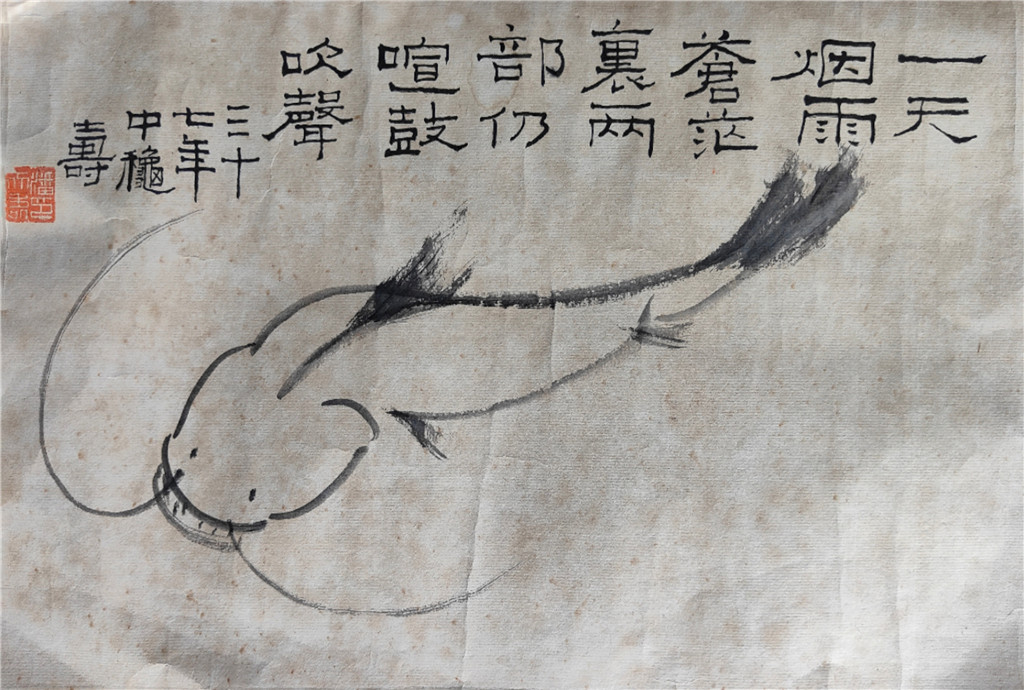 一天
烟雨
蒼茫
裏兩
部仍
喧鼓
吹聲
三十
七年
中穐
壽
潘天壽印